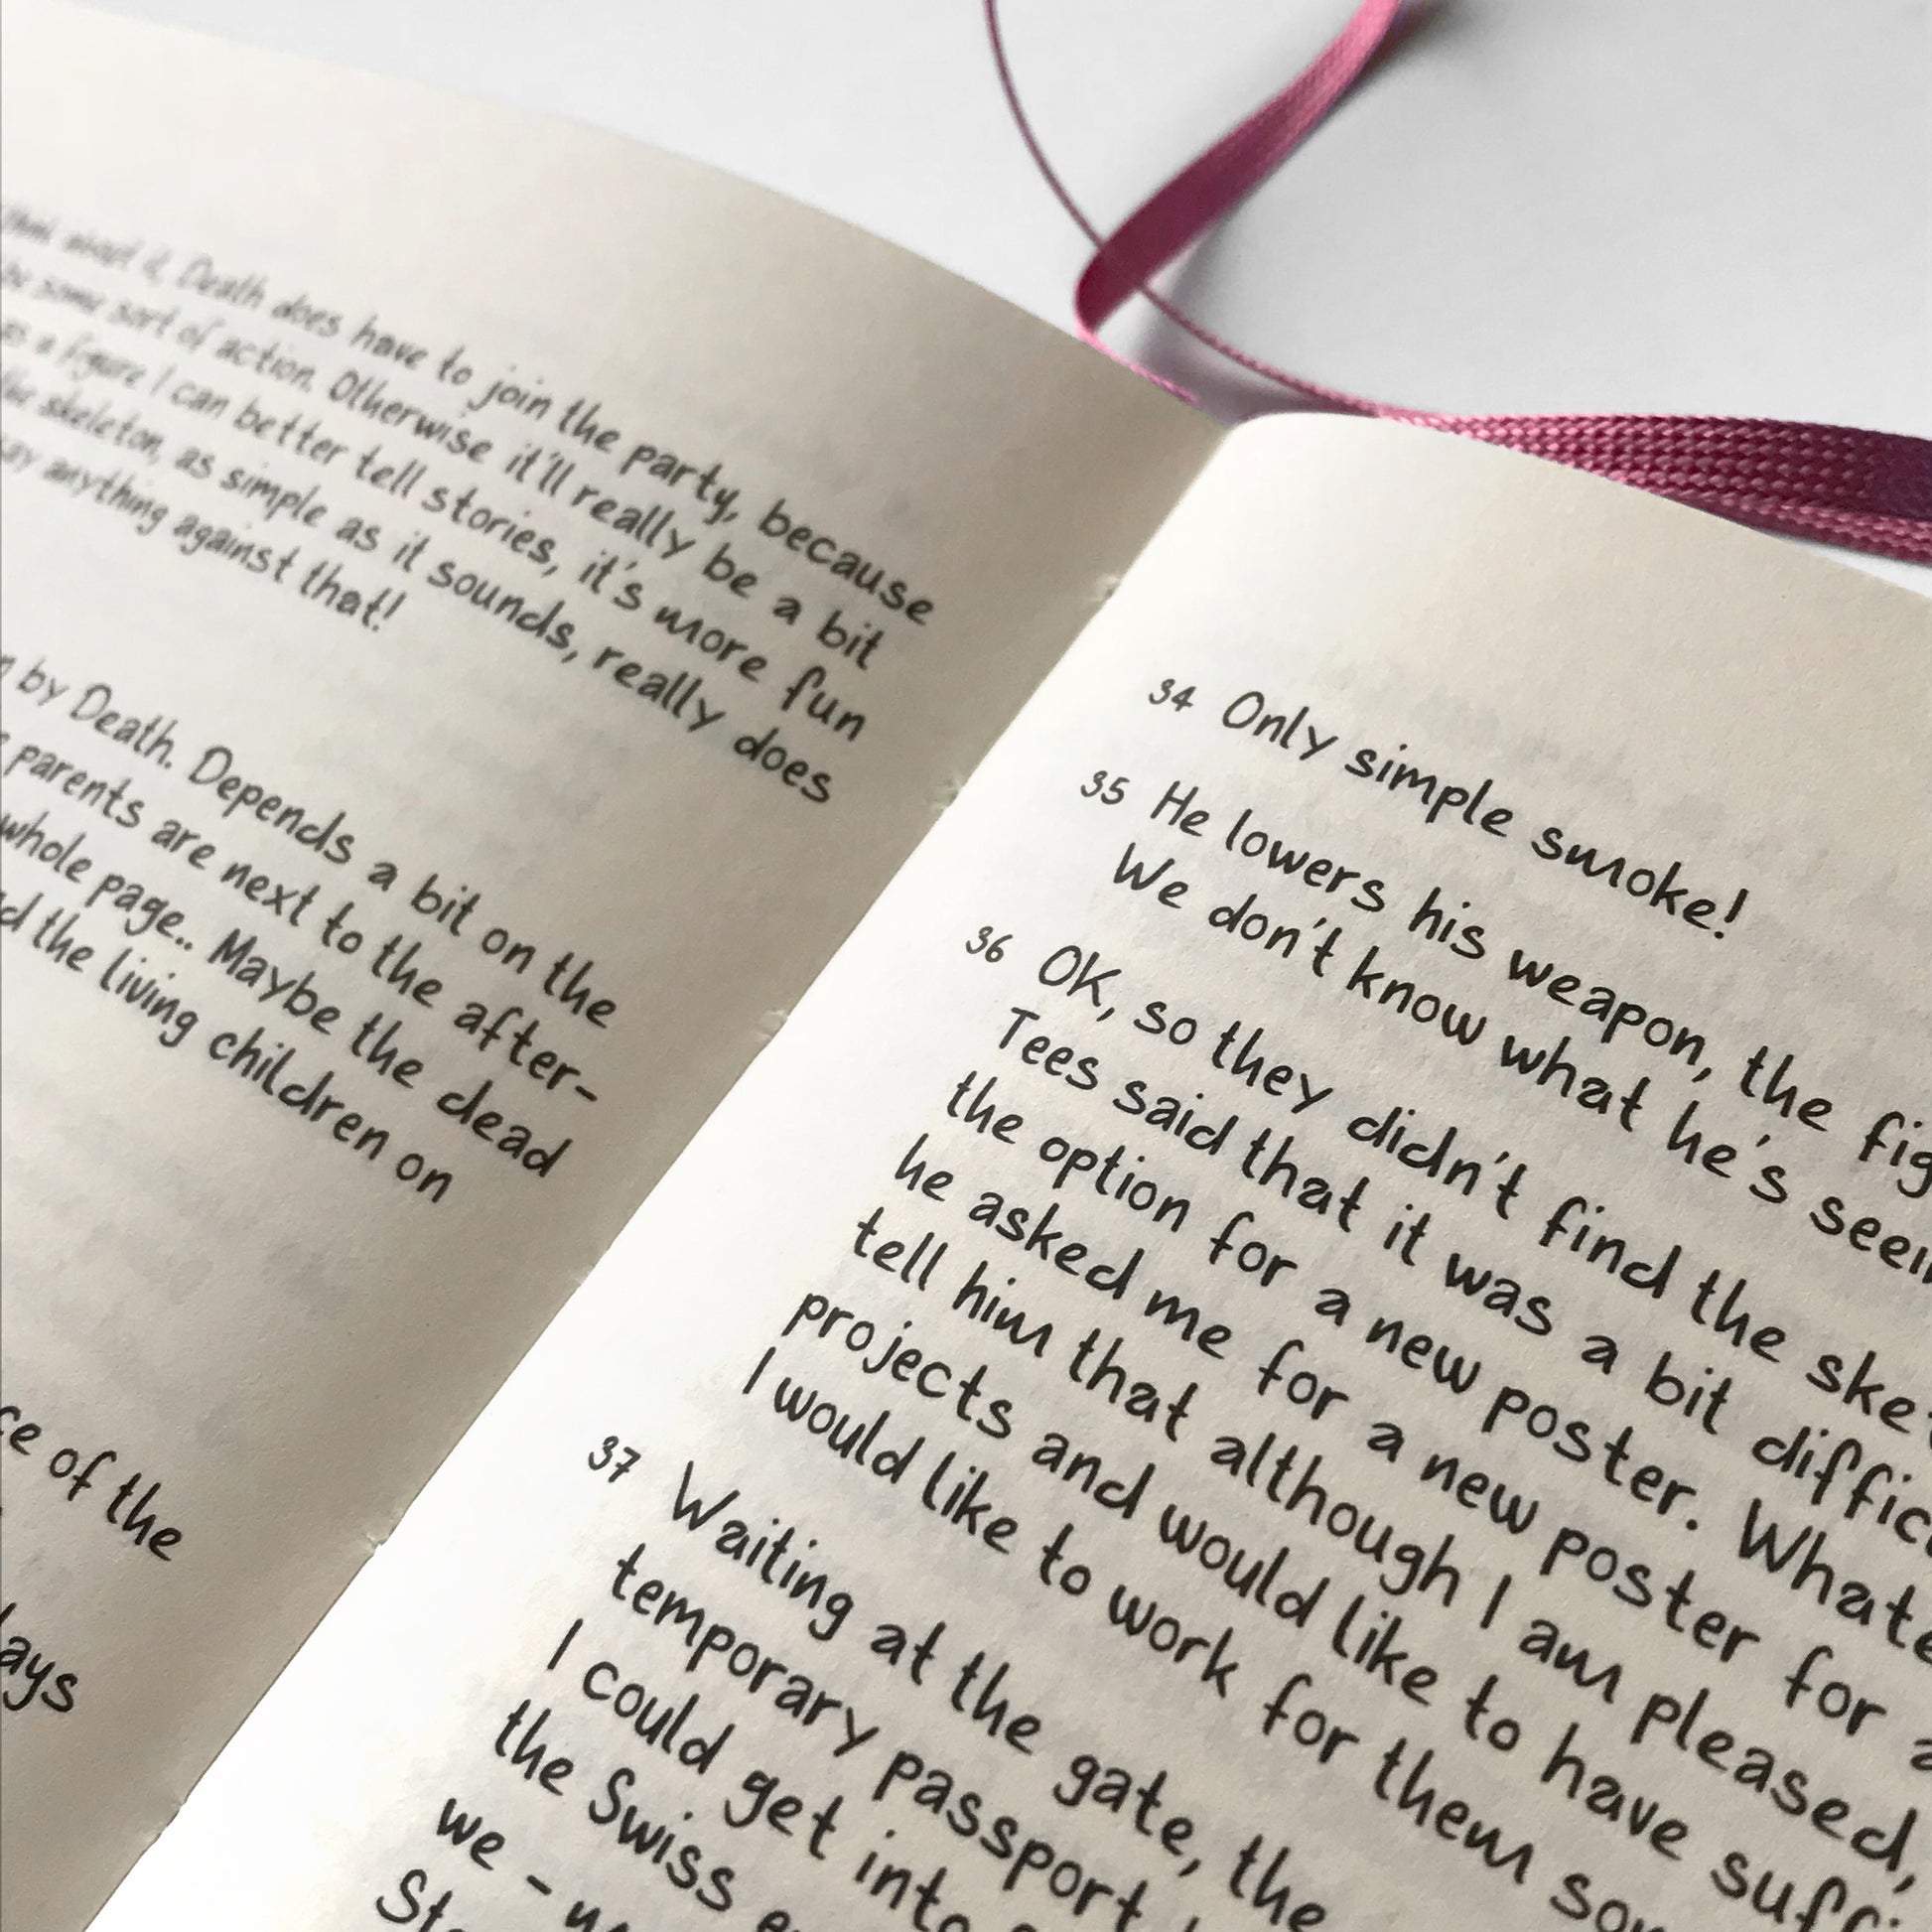 think about it, Death does have to join the party, because
be some sort of action. Otherwise it'll really be a bit
as a figure I can better tell stories, it's more fun
the skeleton, as simple as it sounds, really does
say anything against that!
by Death. Depends a bit on the
parents are next to the after-
whole page.. Maybe the dead
the living children on
of the
34 Only simple smoke!
35 He lowers his weapon, the
We don't know what he's
36 OK, so they didn't find the
Tees said that it was a bit
the option for a new poster.
he asked me for a new poster for
tell him that although I am pleased,
projects and would like to have
I would like to work for them
37 Waiting at the gate, the
temporary passport
I could get into
the Swiss
we -